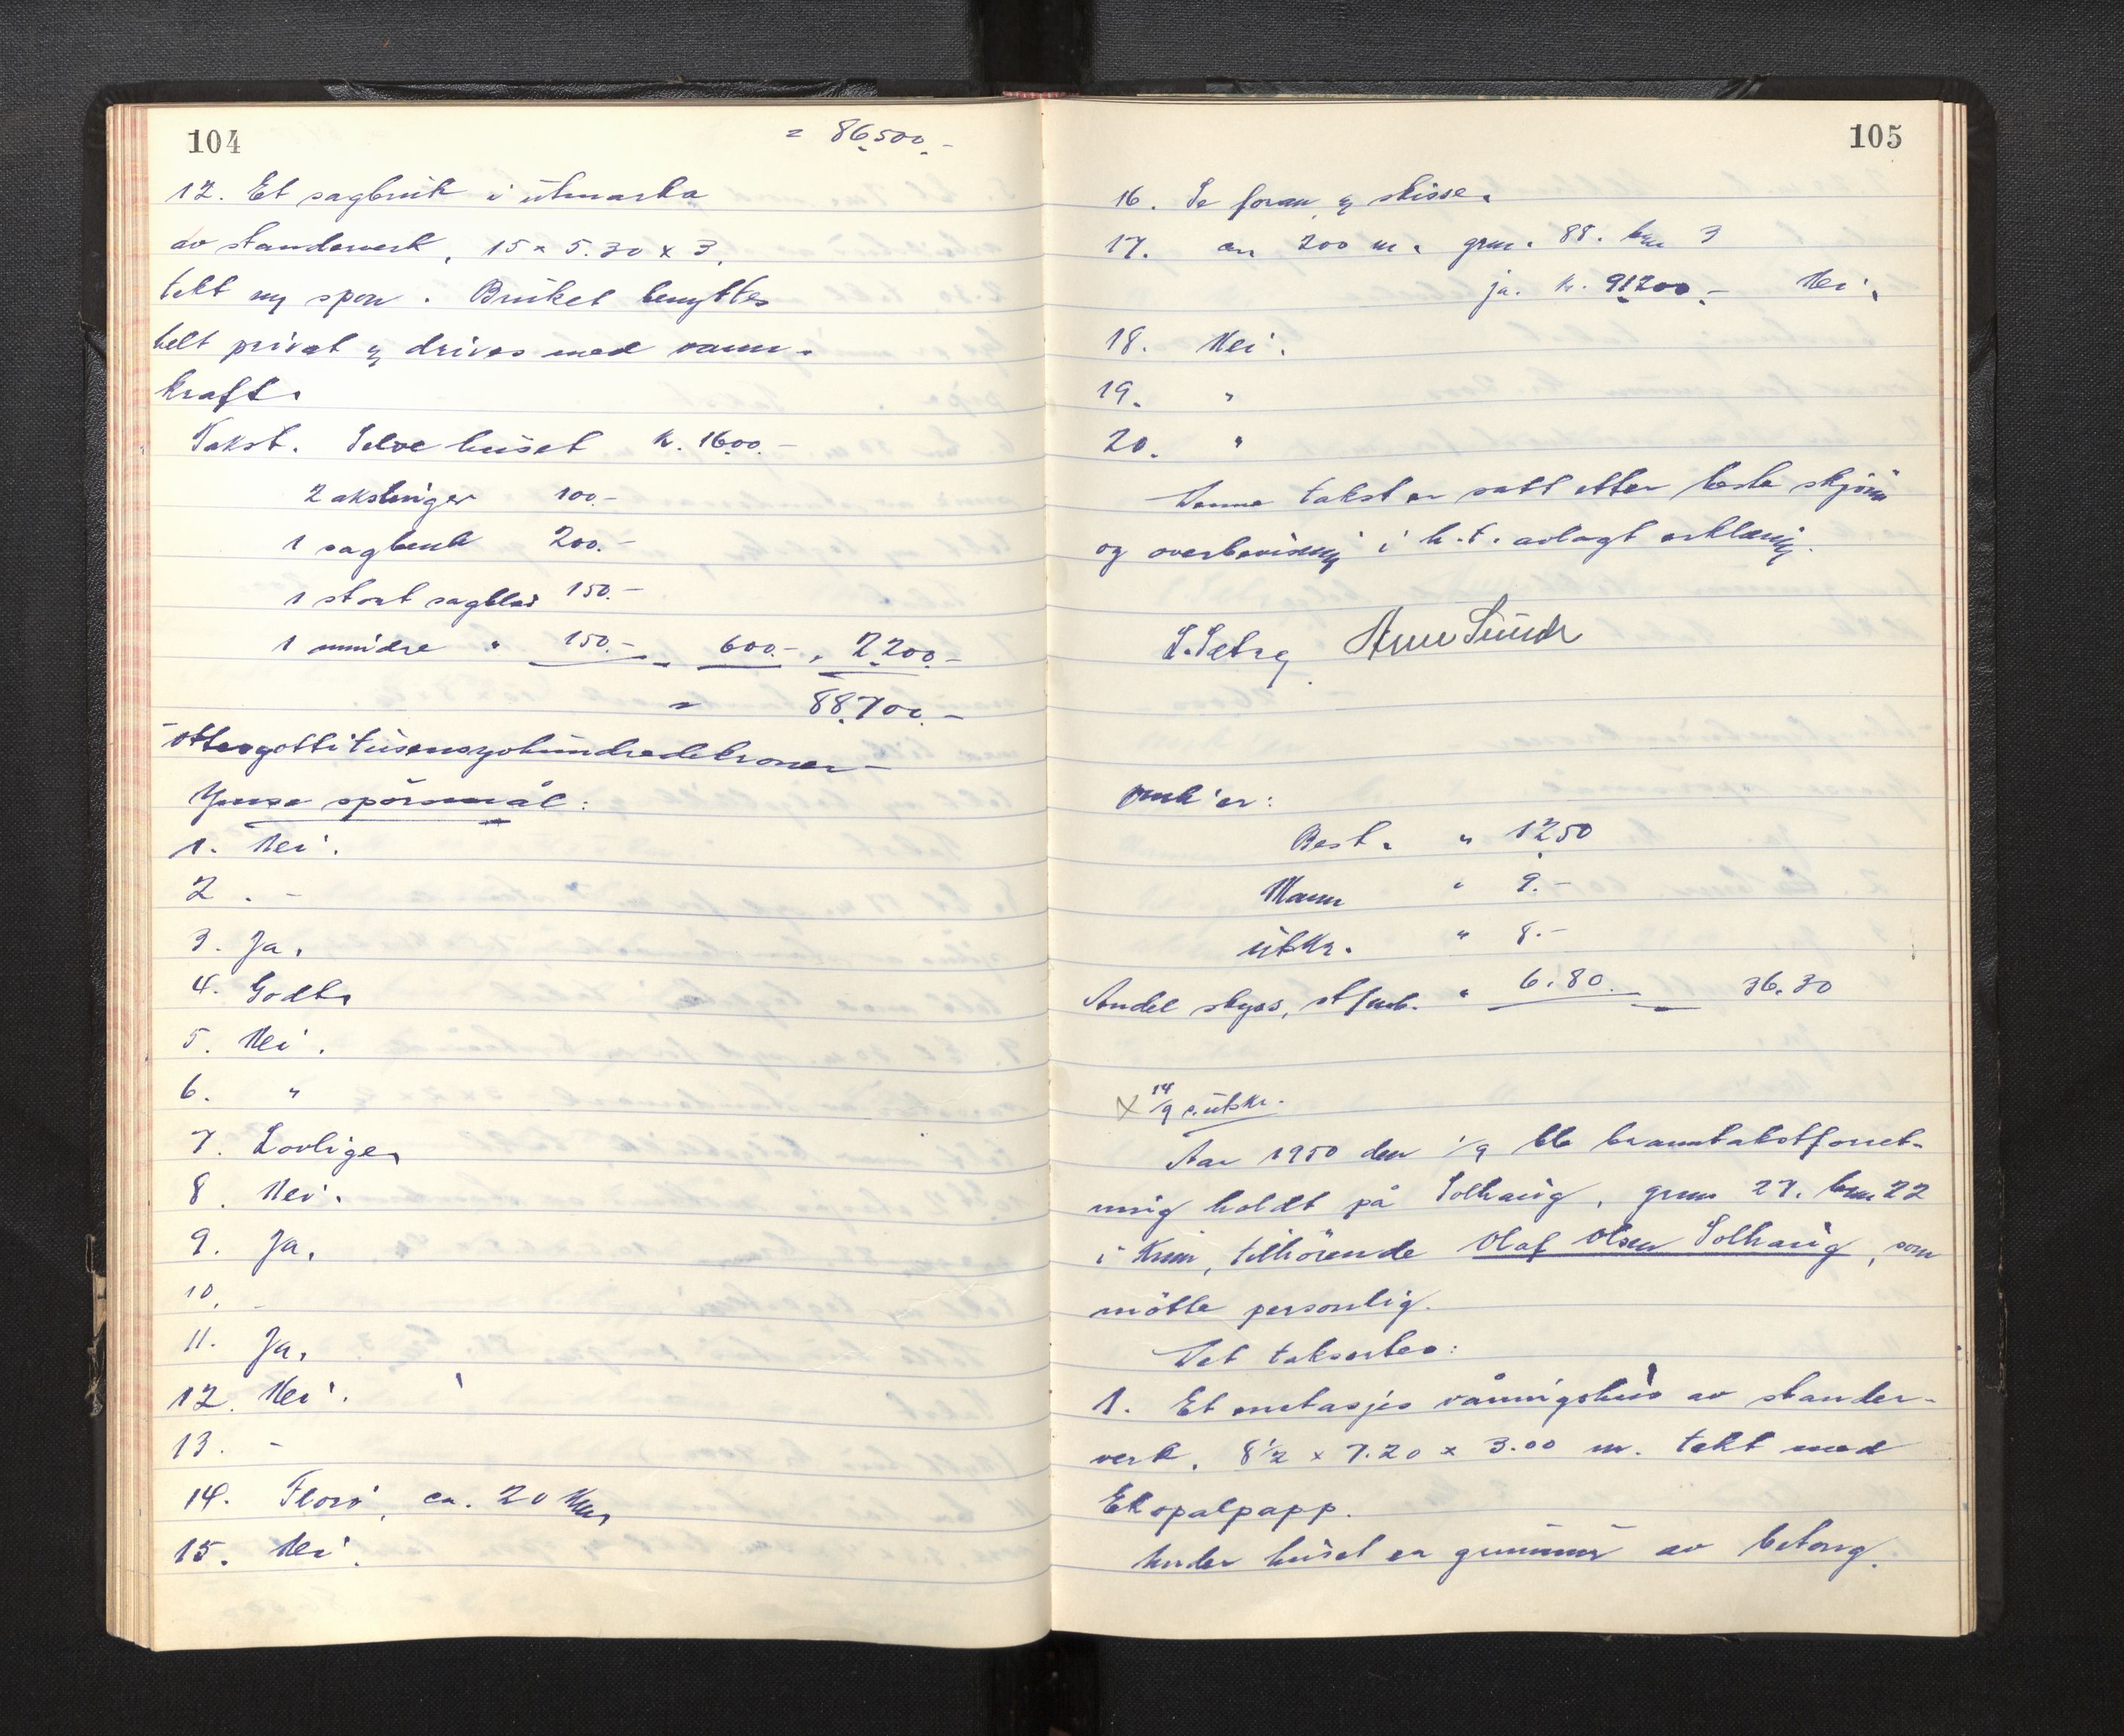 104
= 86.500.-
12. Et sagbruk i utmarka
av standerverk, 15 x 5.30 x 3,
tekt m/ spon. Bruket benyttes
helt privat og drives med vann-
kraft.
Takst. Selve huset kr. 1600.-
2 akslinger 100.-
1 sagbenk 200.-
1 stort sagblad 150.-
1 mindre " 150.- 600.- 2.200.-
= 88.700.-
Ottiogottitusensyvhundredekroner -
Ymse spörsmål:
1. Nei.
2. -
3. Ja.
4. Godt.
5. Nei.
6. "
7. Lovlige.
8. Nei.
9. Ja.
10. -
11. Ja.
12. Nei.
13. -
14. Florö, ca. 20 km.
15. Nei.
105
16. Se foran og skisse.
17. ca 200 m. grnr. 88. bnr 3
ja. kr. 91200.- Nei.
18. Nei.
19. "
20. "
Denne takst er satt etter beste skjönn
og overbevisning i h.t. avlagt erklæring.
Arne Sunde
Best. " 12.50
Mann " 9.-
utskr. " 8.-
Andel skyss, " 6.80. 36.30
x 14/9 s. utskr.
Aar 1950 den 1/9 ble branntakstforret-
ning holdt på Solhaug, grnr 27. bnr 22
i Kinn, tilhörende Olaf Olsen Solhaug, som
mötte personlig.
Det takseres:
1. Et enetasjes våningshus av stander-
verk, 8 1/2 x 7.20 x 3.00 m. tekt med
Ekopalpapp.
Under huset er grunnmur av betong.